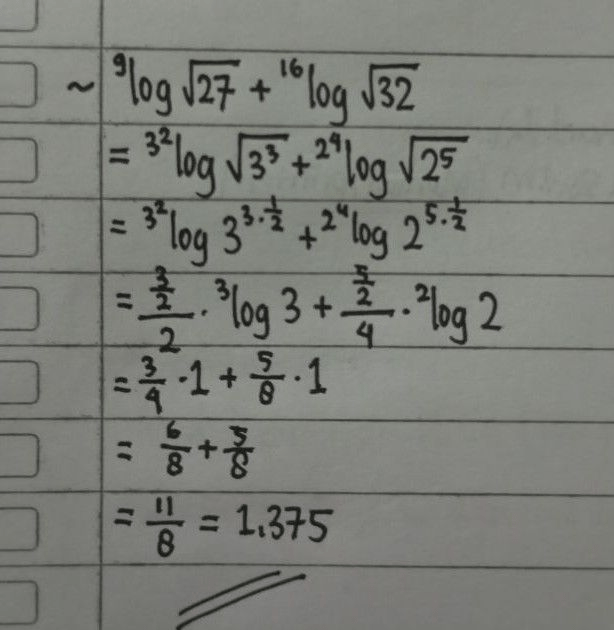 ~ ⁹log √27 + ¹⁶log √32
= ³^²log √3³ + ²^⁴log √2⁵
= ³^²log 3^(3·1/2) + ²^⁴log 2^(5·1/2)
= (3/2)/2 · ³log 3 + (5/2)/4 · ²log 2
= 3/4 · 1 + 5/8 · 1
= 6/8 + 5/8
= 11/8 = 1.375